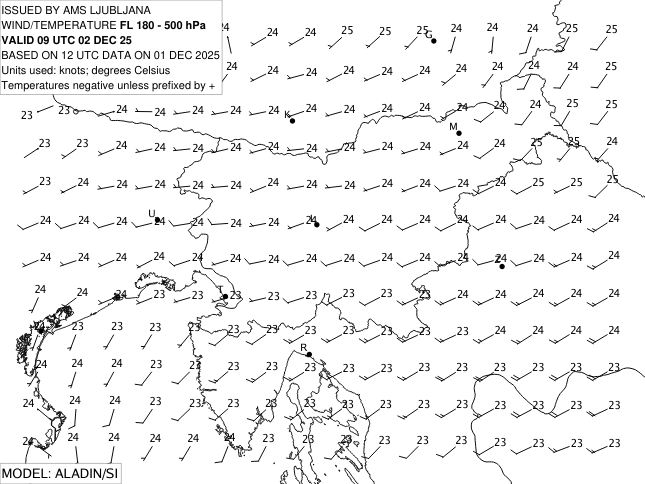 ISSUED BY AMS LJUBLJANA
WIND/TEMPERATURE FL 180 - 500 hPa
VALID 09 UTC 02 DEC 25
BASED ON 12 UTC DATA ON 01 DEC 2025
Units used: knots; degrees Celsius
Temperatures negative unless prefixed by +
24 24 24 25 25 25 24 24 24 25 25
24 24 24 24 24 24 24 24 24 25 25
23 23 24 24 24 24 24 24 24 24 24 24 24 25 25 25
K
M
G
23 23 24 24 24 24 24 24 24 24 24 24 24 25 25 24
23 24 24 24 24 24 24 24 24 24 24 24 24 25 25 25
24 24 24 24 24 24 24 24 24 24 24 24 24 24 24 24
U
24 24 24 24 24 24 24 24 24 24 24 24 24 24 24 24
Z
24 24 23 23 23 23 23 23 23 23 24 24 24 24 24
T
24 23 23 23 23 23 23 23 23 23 24 24 24 24 24 24
R
24 24 24 23 23 23 23 23 23 23 23 23 23 23 23 23
24 24 24 23 23 23 23 23 23 23 23 23 23 23 23 23
24 24 24 24 24 24 23 23 23 23 23 23 23 23 23 23
MODEL: ALADIN/SI